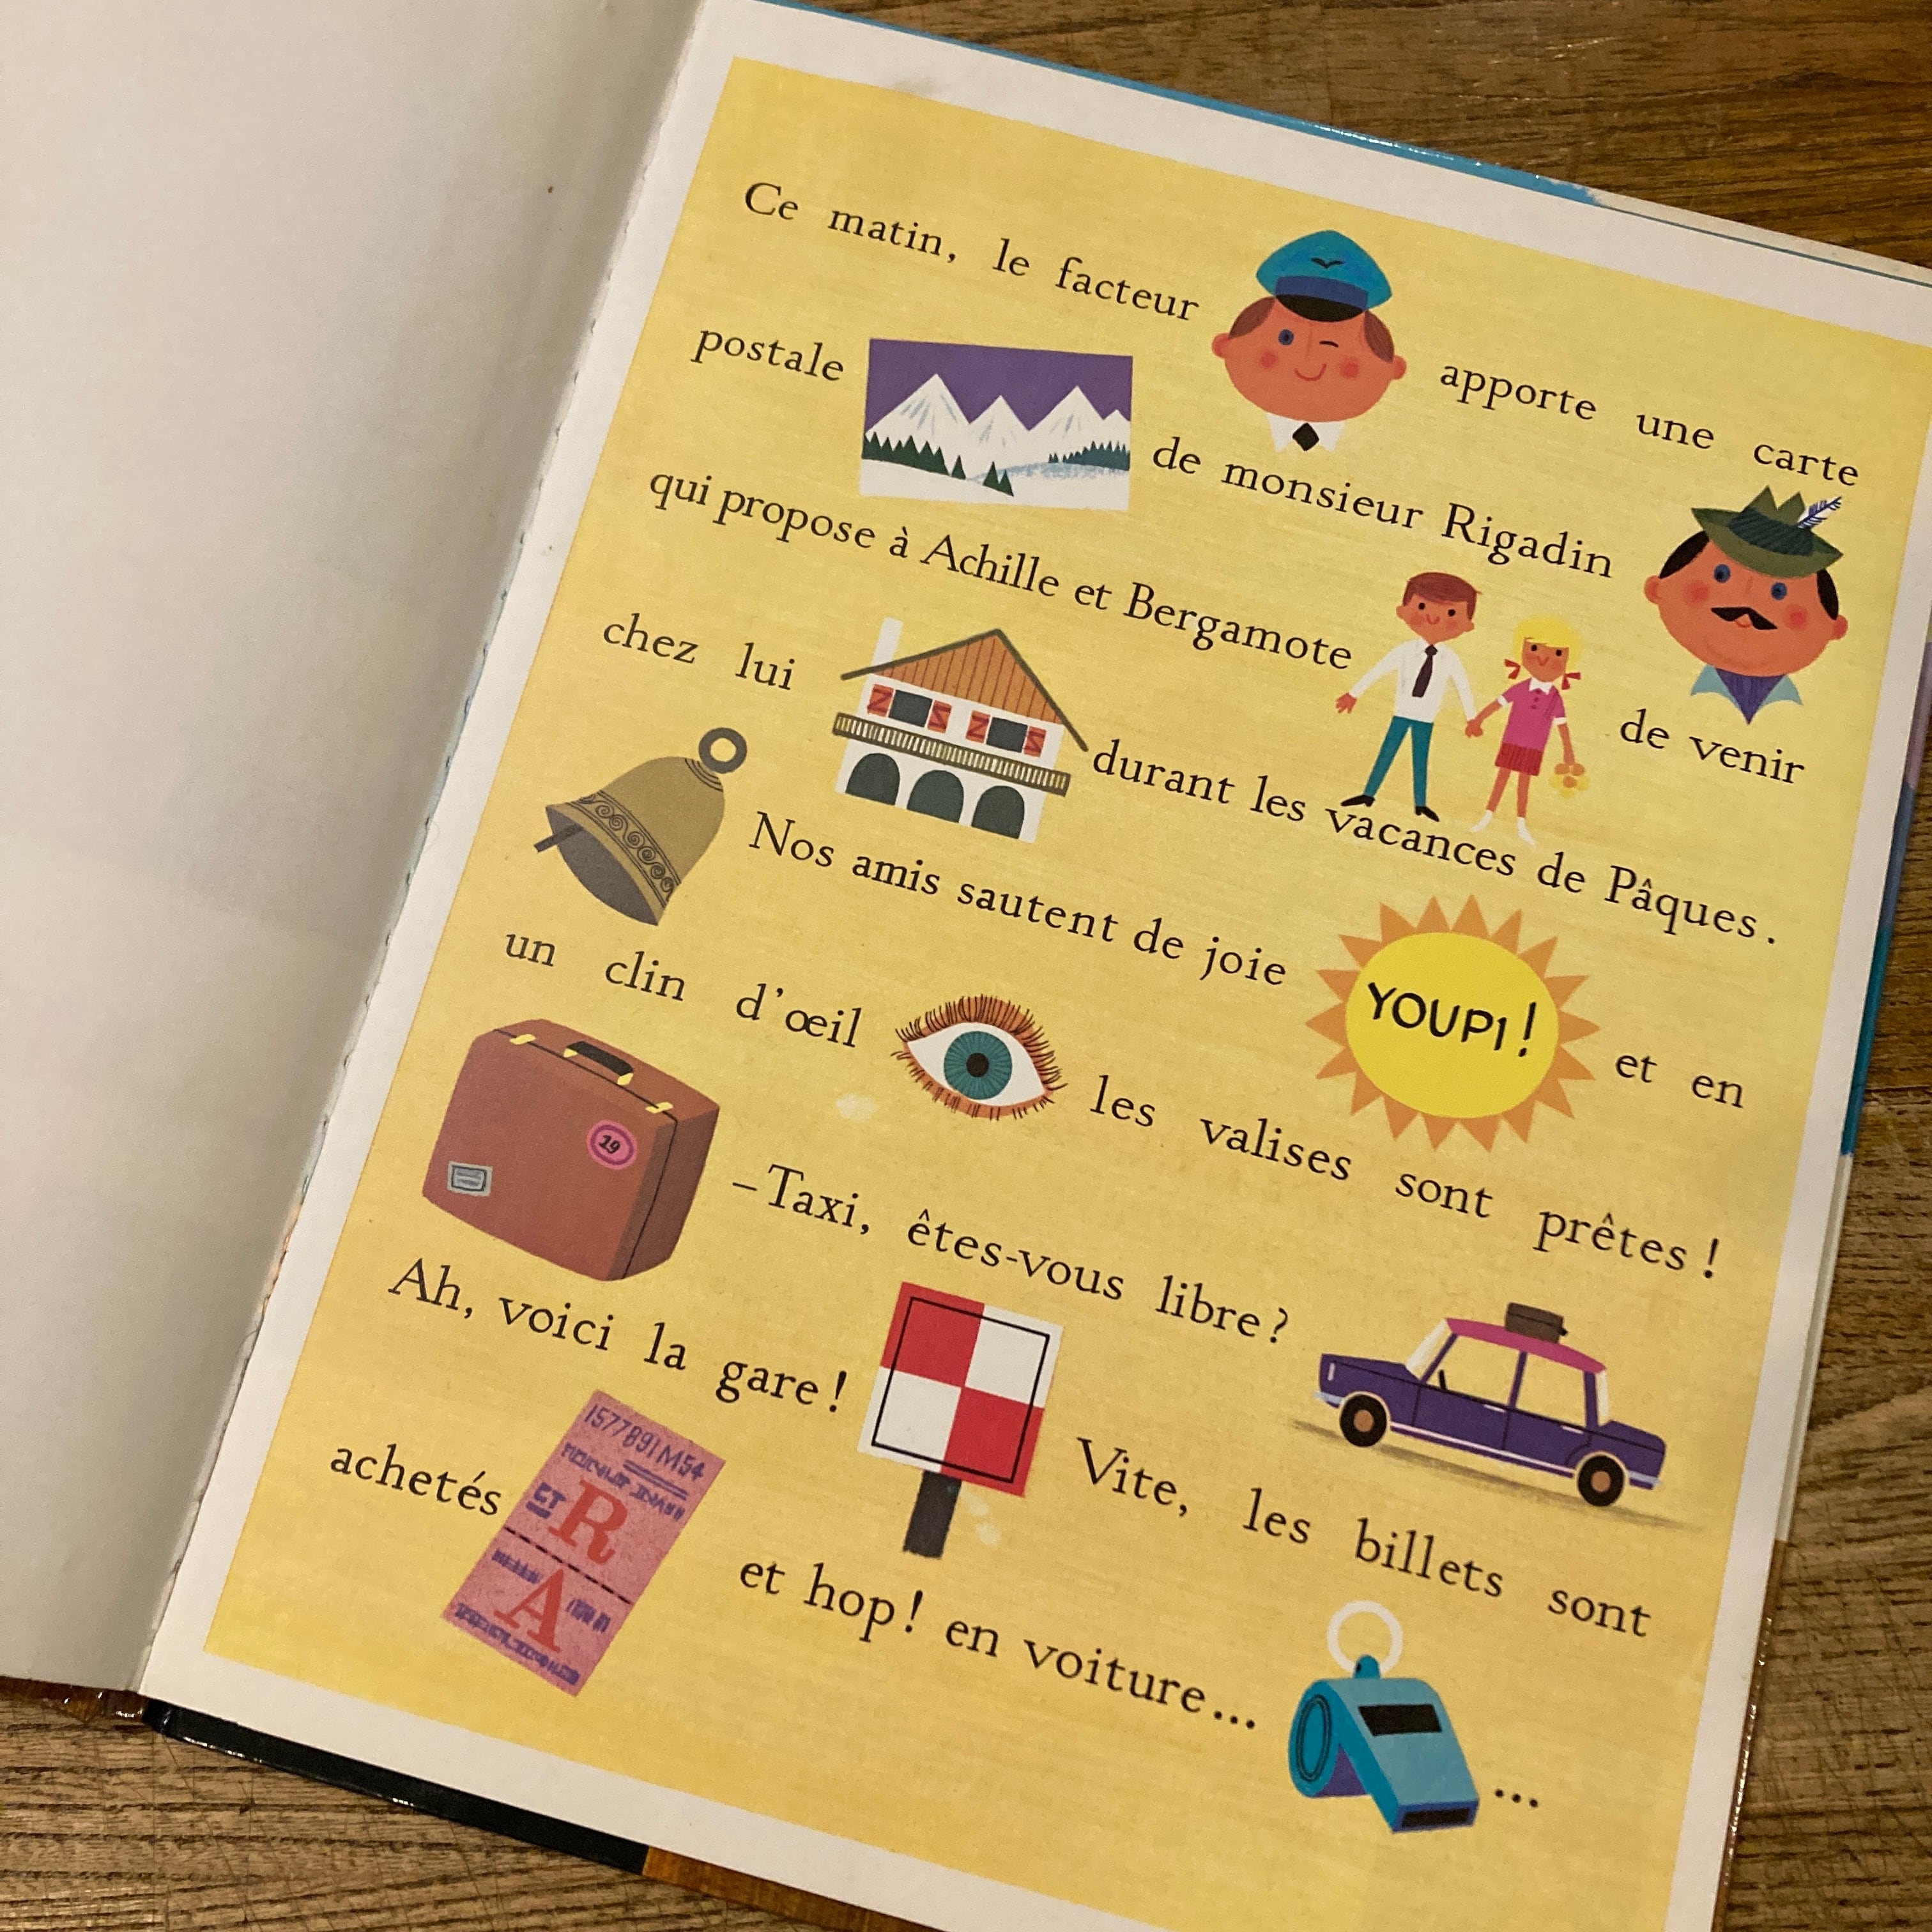 Ce matin, le facteur apporte une carte
postale de monsieur Rigadin
qui propose à Achille et Bergamote de venir
chez lui durant les vacances de Pâques.
Nos amis sautent de joie YOUPI! et en
un clin d'œil les valises sont prêtes !
19
–Taxi, êtes-vous libre ?
Ah, voici la gare ! Vite, les billets sont
achetés et hop ! en voiture... ...
1577891M54
ET R
A